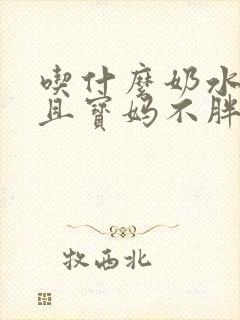 喫什麼奶水
且寶媽不胖
牧西北